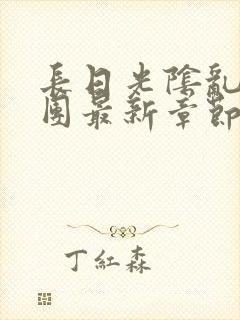 長日光陰亂
團最新章節
丁紅森